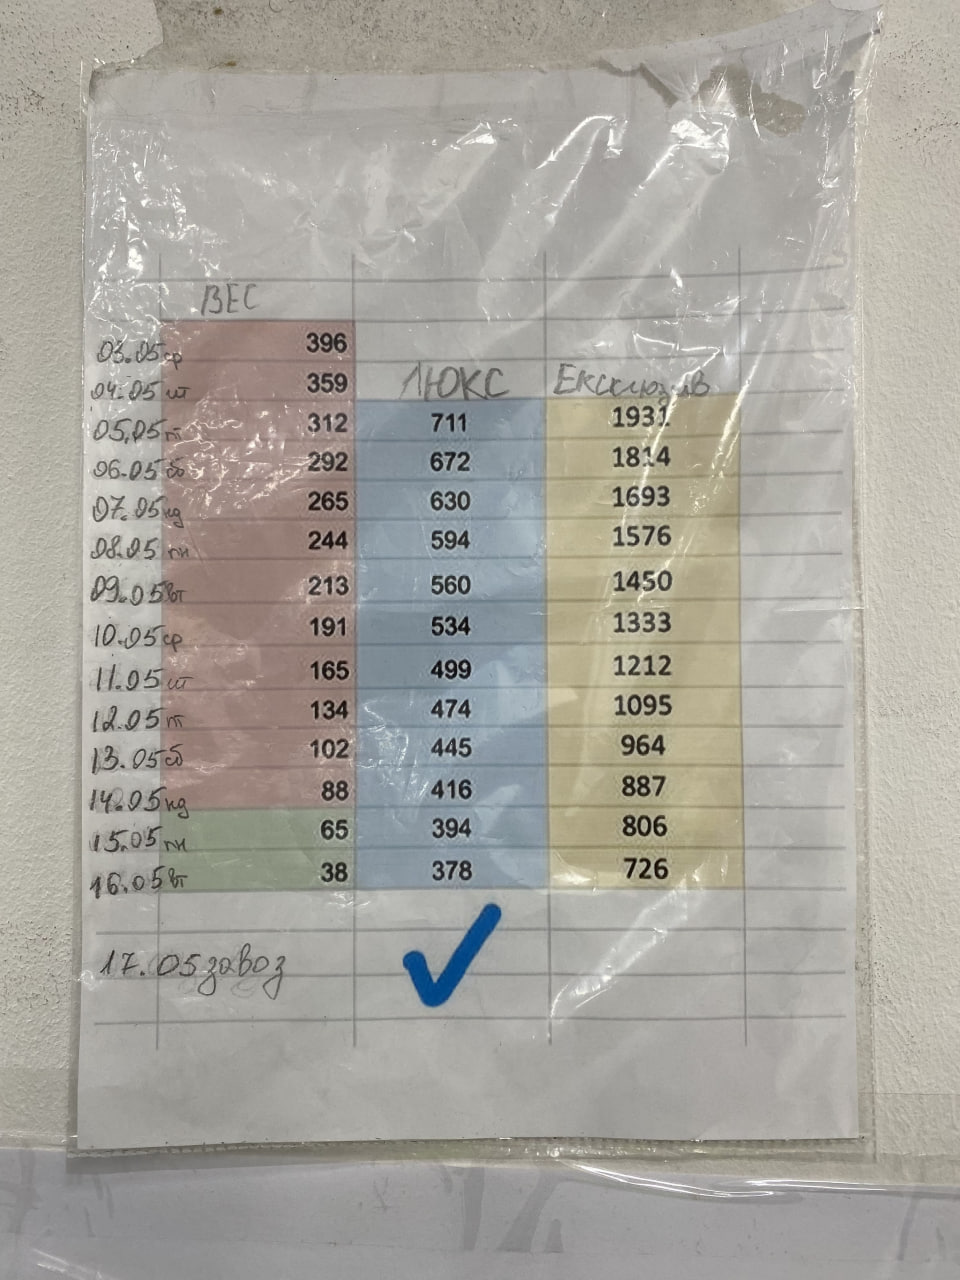 ВЕС
03.05 ср 396
04.05 чт 359 ЛЮКС Ексклюзив
05.05 пт 312 711 1931
06.05 сб 292 672 1814
07.05 нд 265 630 1693
08.05 пн 244 594 1576
09.05 вт 213 560 1450
10.05 ср 191 534 1333
11.05 чт 165 499 1212
12.05 пт 134 474 1095
13.05 сб 102 445 964
14.05 нд 88 416 887
15.05 пн 65 394 806
16.05 вт 38 378 726
17.05 завоз